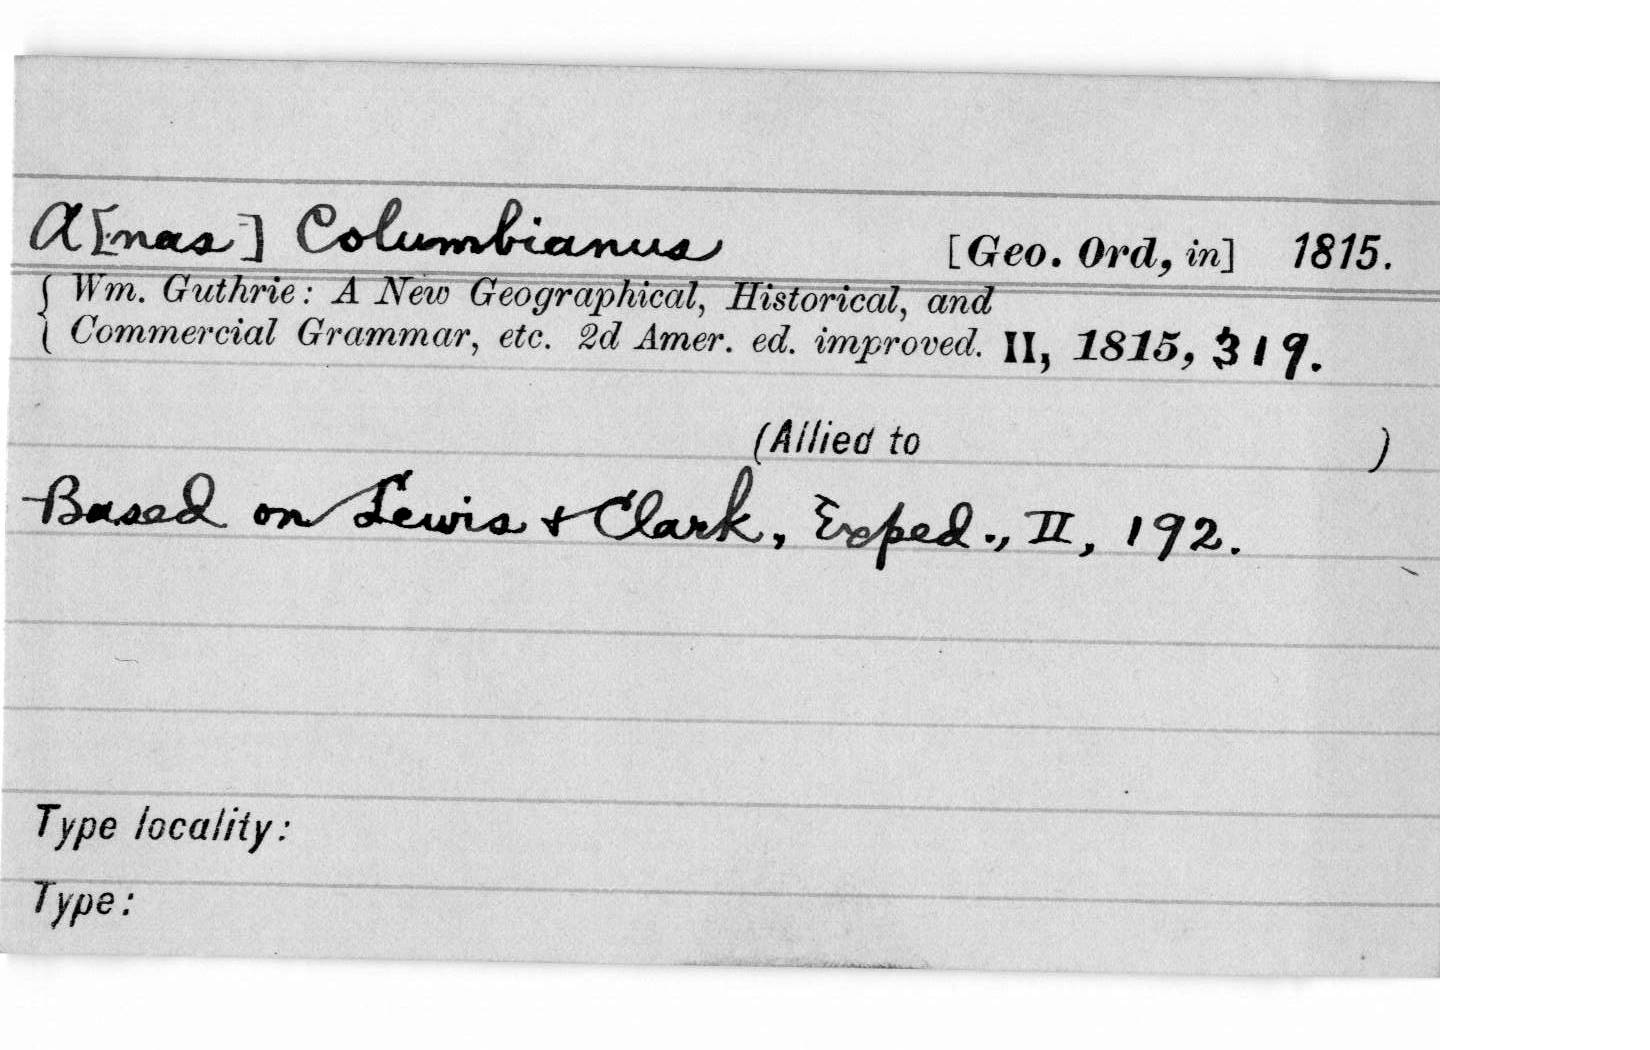 A[nas] Columbianus [Geo. Ord, in] 1815.
Wm. Guthrie: A New Geographical, Historical, and
Commercial Grammar, etc. 2d Amer. ed. improved. II, 1815, 319.
(Allied to )
Based on Lewis & Clark, Exped., II, 192.
Type locality:
Type: